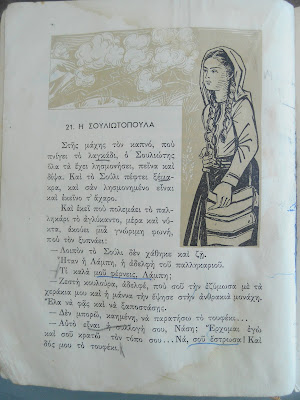 21. Η ΣΟΥΛΙΩΤΟΠΟΥΛΑ
Στῆς μάχης τὸν καπνό, ποὺ
πνίγει τὸ λαγκάδι, ὁ Σουλιώτης
ὅλα τὰ ἔχει λησμονήσει, πεῖνα καὶ
δίψα. Καὶ τὸ Σούλι πέφτει ξέμα-
κρα, καὶ σὰν λησμονημένο εἶναι
καὶ ἐκεῖνο τ' ἄχαρο.
Καὶ ἐκεῖ ποὺ πολεμάει τὸ παλ-
ληκάρι τὸ ἀγλύκαντο, μέρα καὶ νύ-
κτα, ἀκούει μιὰ γνώριμη φωνή,
ποὺ τὸν ξυπνάει:
— Λοιπὸν τὸ Σούλι δὲν χάθηκε καὶ ζῇ.
Ἦταν ἡ Λάμπη, ἡ ἀδελφὴ τοῦ παλληκαριοῦ.
— Τί καλὰ μοῦ φέρνεις, Λάμπη;
— Ζεστὴ κουλούρα, ἀδελφέ, ποὺ σοῦ τὴν ἐζύμωσα μὲ τὰ
χεράκια μου καὶ ἡ μάννα τὴν ἔψησε στὴν ἀνθρακιὰ μονάχη.
Ἔλα νὰ φᾷς καὶ νὰ ξαποστάσῃς.
— Δὲν μπορῶ, καημένη, νὰ παρατήσω τὸ τουφέκι...
— Αὐτὸ εἶναι ἡ συλλογή σου, Νάση; Ἔρχομαι ἐγὼ
καὶ σοῦ κρατῶ τὸν τόπο σου... Νά, σοῦ ἔστρωσα! Καὶ
δός μου τὸ τουφέκι.